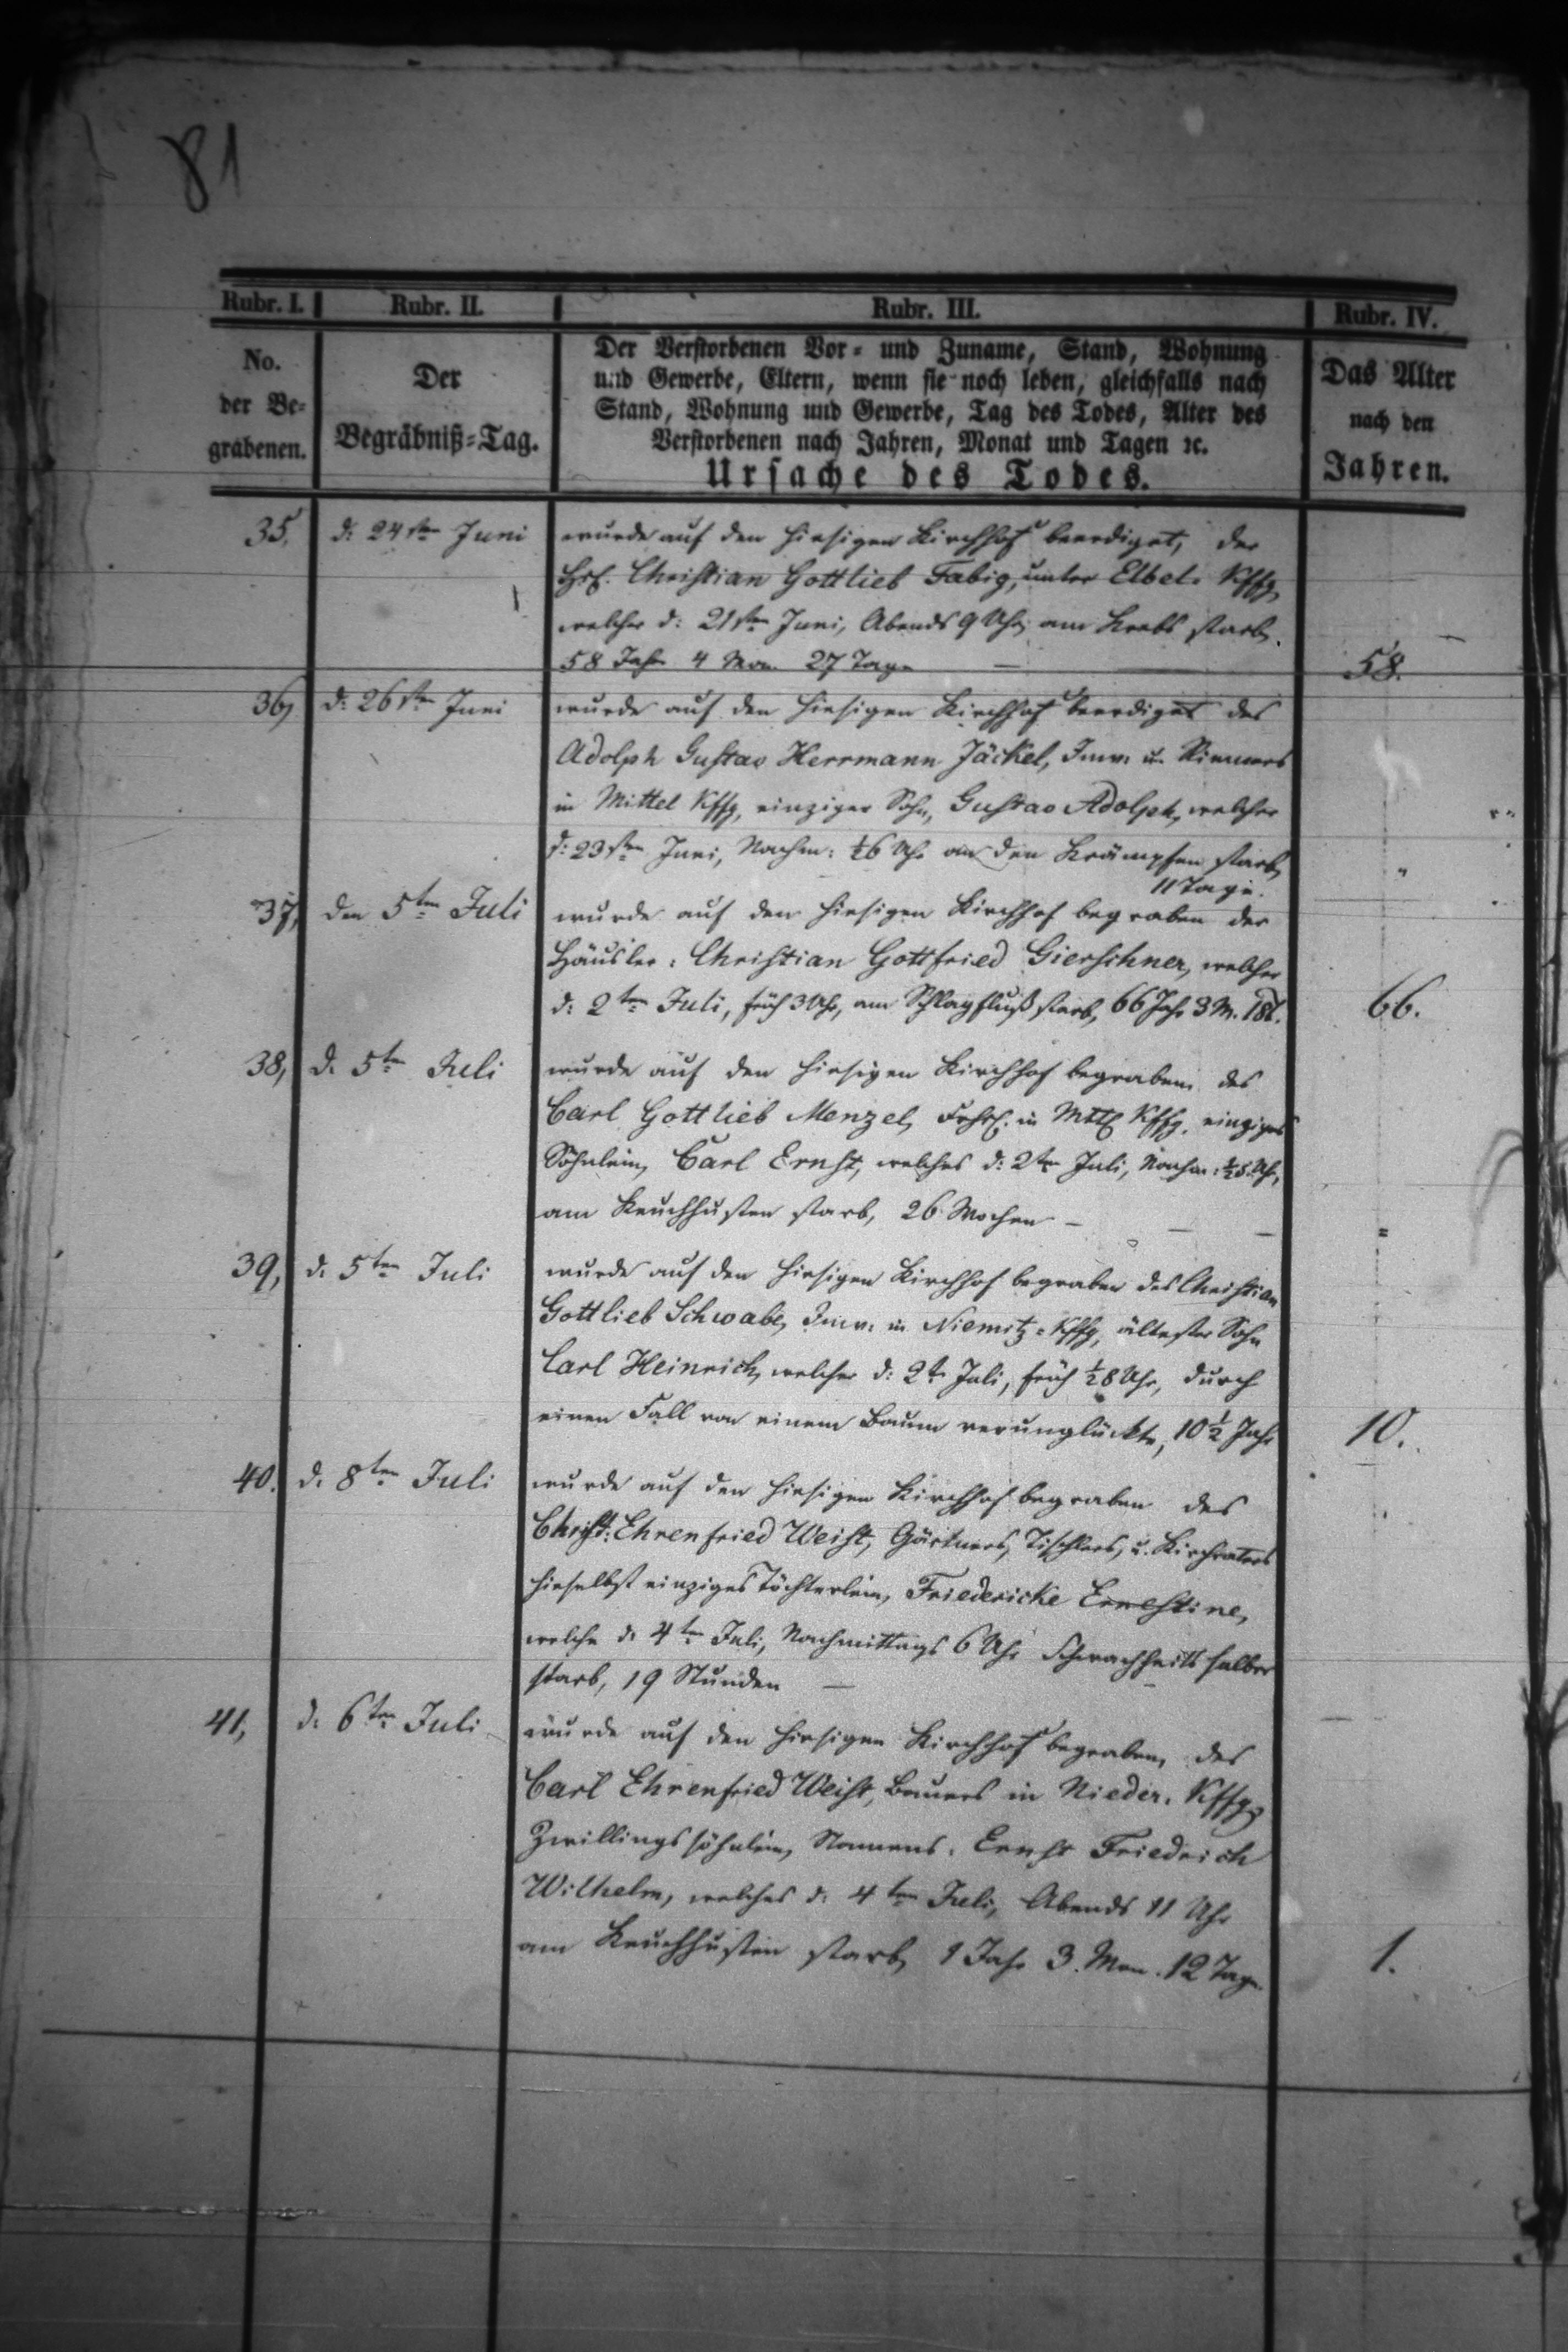 81
Rubr. I. Rubr. II. Rubr. III. Rubr. IV.
No.
der Be-
grabenen.
Der
Begräbniß-Tag.
Der Verstorbenen Vor- und Zuname, Stand, Wohnung
und Gewerbe, Eltern, wenn sie noch leben, gleichfalls nach
Stand, Wohnung und Gewerbe, Tag des Todes, Alter des
Verstorbenen nach Jahren, Monat und Tagen ꝛc.
Ursache des Todes.
Das Alter
nach den
Jahren.
35, d: 24sten Juni wurde auf den hiesigen Kirchhof beerdiget, der
Christian Gottlieb Fabig, unter Elbel. Kffg,
welcher d: 21sten Juni, Abends 9 Uhr am Krebs starb,
58 Jahr 4 Mon. 27 Tage — 58.
36, d: 26sten Juni wurde auf den hiesigen Kirchhof beerdiget des
Adolph Gustav Herrmann Jäckel, Inw. u. Riemers
in Mittel Kffg, einziger Sohn, Gustav Adolph, welcher
d: 23sten Juni, Nachm: ½6 Uhr an den Krämpfen starb,
11 Tage. "
37, den 5ten Juli wurde auf den hiesigen Kirchhof begraben der
Häusler: Christian Gottfried Gierschner, welcher
d: 2ten Juli, früh 3 Uhr, am Schlagfluß starb, 66 Jahr 3 M. 18 t. 66.
38, d. 5ten Juli wurde auf den hiesigen Kirchhof begraben des
Carl Gottlieb Menzel, in Mttl Kffg. einziges
Söhnlein, Carl Ernst, welches d: 2ten Juli, Nachm: Uhr,
am Keuchhusten starb, 26 Wochen — — — "
39, d. 5ten Juli wurde auf den hiesigen Kirchhof begraben des Christian
Gottlieb Schwabe, Inw. in Niemitz-Kffg, ältester Sohn
Carl Heinrich, welcher d: 2t Juli, früh ½8 Uhr, durch
einen Fall von einem Baum verunglückte, 10½ Jahr 10.
40. d. 8ten Juli wurde auf den hiesigen Kirchhof begraben des
Christ: Ehrenfried Weist, Gärtners, Tischlers, u. Kirchvaters
hieselbst einziges Töchterlein, Friedericke Ernestine,
welche d. 4ten Juli, Nachmittags 6 Uhr Schwachheits halber
starb, 19 Stunden — —
41, d. 6ten Juli wurde auf den hiesigen Kirchhof begraben, des
Carl Ehrenfried Weist, Bauers in Nieder. Kffg,
Zwillingssöhnlein, Namens: Ernst Friedrich
Wilhelm, welches d. 4ten Juli, Abends 11 Uhr
am Keuchhusten starb, 1 Jahr 3. Mon. 12 Tage. 1.